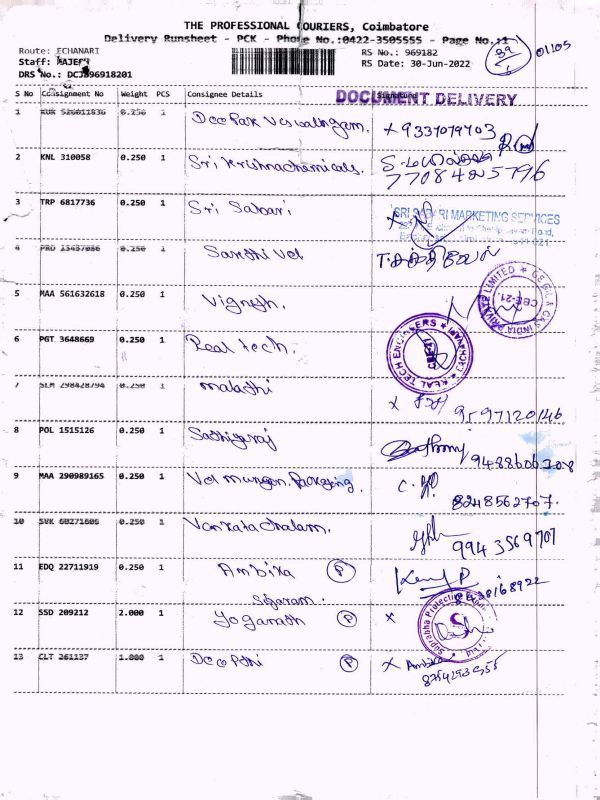 THE PROFESSIONAL COURIERS, Coimbatore
Delivery Runsheet - PCK - Phone No.:0422-3505555 - Page No.:1
39
01105
Route: ECHANARI
RS No.: 969182
Staff: RAJESH
RS Date: 30-Jun-2022
DRS No.: DCJB96918201
S No Consignment No Weight PCS Consignee Details Signature
DOCUMENT DELIVERY
1 KUR 526011836 0.250 1 Deepak Viswalingam. x 9337079703
2 KNL 310058 0.250 1 Sri Krishnachemicals. 7708425796
3 TRP 6817736 0.250 1 Sri Sabari
SRI SABARI MARKETING SERVICES
4 PRO 13457086 0.250 1 Santhi Vel T.சக்திவேல்
5 MAA 561632618 0.250 1 Vignesh.
PRIVATE LIMITED ★ GE OIL & GAS INDIA
CBE-21
6 PGT 3648669 0.250 1 Real tech.
REAL TECH ENGINEERS ★ EACHANARI ★
CBE-21
7 SLM 298428794 0.250 1 malathi x 9597120146
8 POL 1515126 0.250 1 Sathiyaraj 9488606208
9 MAA 290989165 0.250 1 Vel murugan. Packaging. 8248562707.
10 SVK 60271606 0.250 1 Venkatachalam. 9943569707
11 EDQ 22711919 0.250 1 Ambika P
12 SSD 209212 2.000 1 Yoganath P x
Suprabha Protective
13 CLT 261137 1.000 1 Deepthi P x Ambika